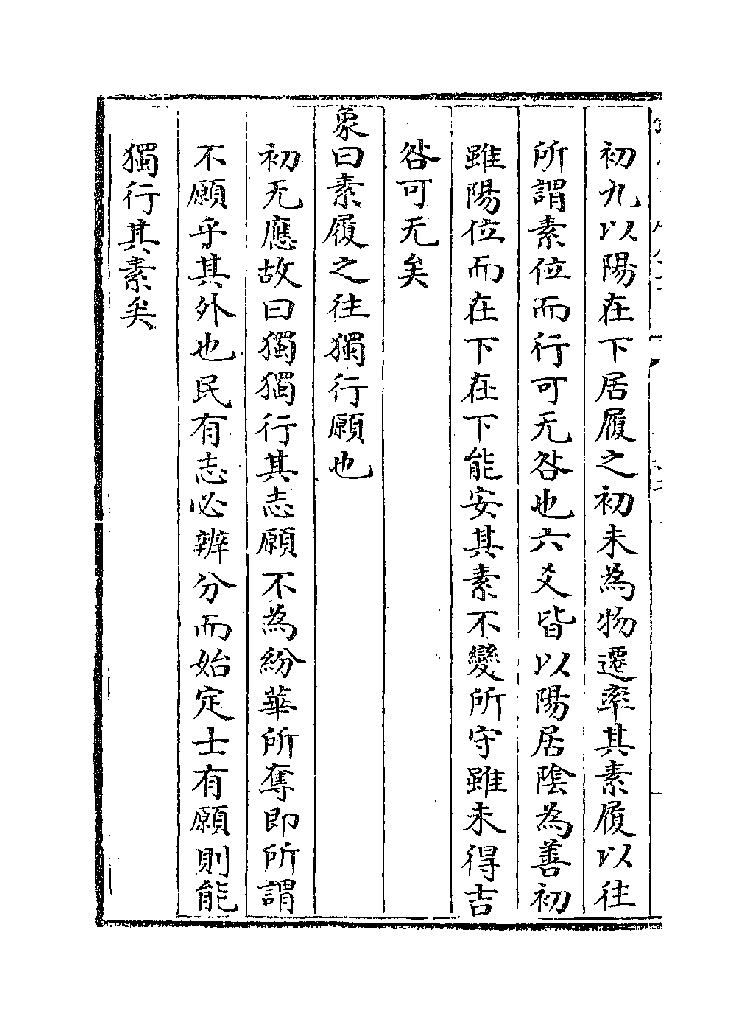 初九以陽在下居履之初未為物遷率其素履以往
所謂素位而行可无咎也六爻皆以陽居陰為善初
雖陽位而在下在下能安其素不變所守雖未得吉
咎可无矣
象曰素履之往獨行願也
初无應故曰獨獨行其志願不為紛華所奪即所謂
不願乎其外也民有志必辨分而始定士有願則能
獨行其素矣